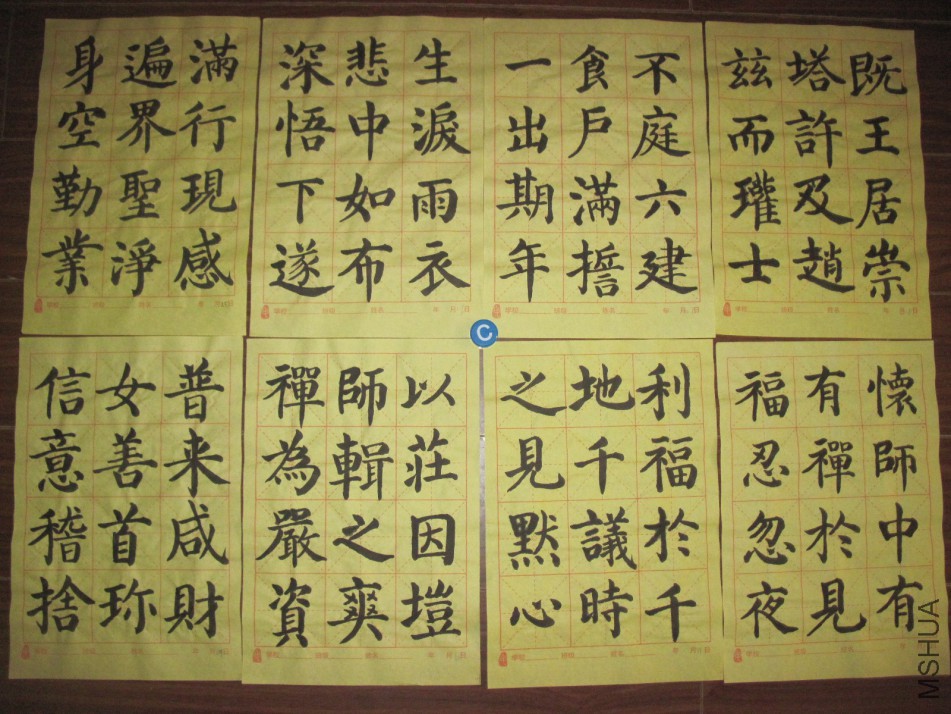 身遍滿
空界行
勤聖現
業淨感
深悲生
悟中淚
下如雨
遂布衣
一食不
出戶庭
期滿六
年誓建
兹塔既
而許王
瓘及居
士趙崇
信女普
意善来
稽首咸
捨珎財
禪師以
為輯莊
嚴之因
資爽塏
之地利
見千福
默議於
心時千
福有懷
忍禪師
忽於中
夜見有
C
MSHUA